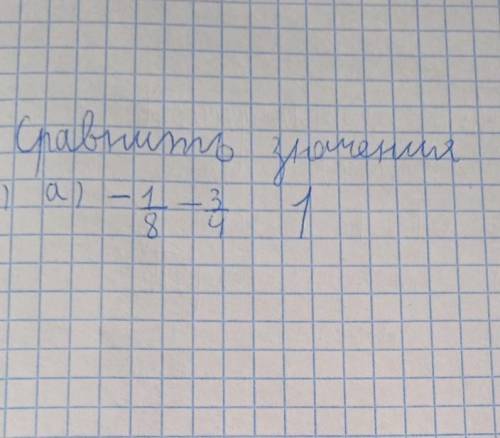 Сравнить значения
) а) -1/8 - 3/4 1